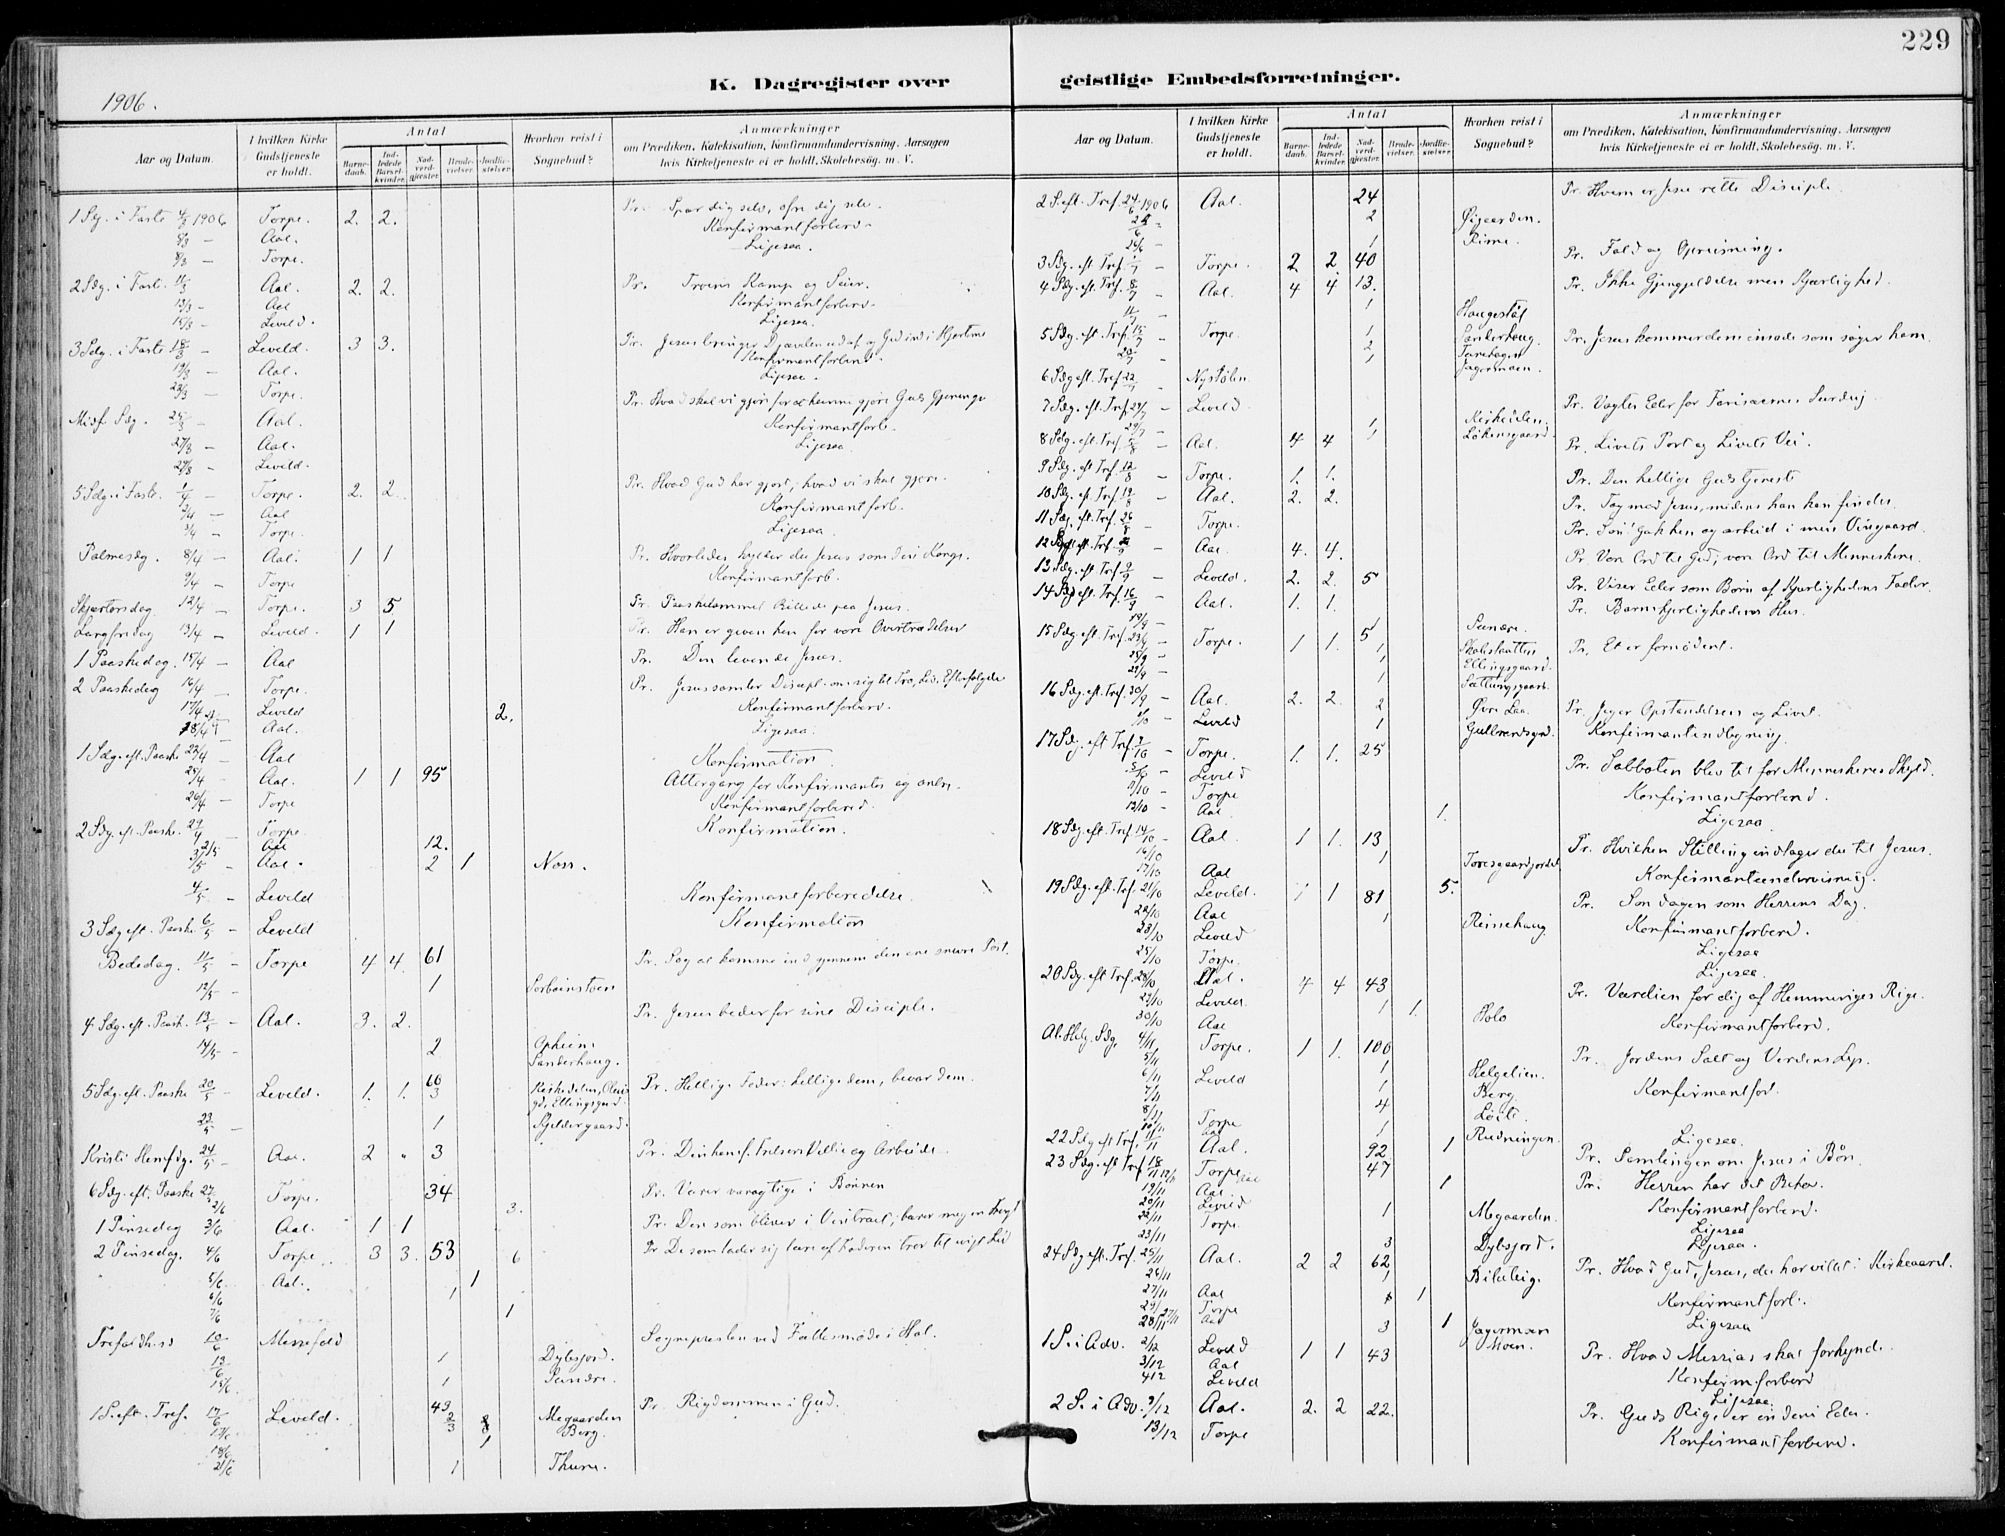 229
K. Dagregister over
geistlige Embedsforretninger.
1906.
Aar og Datum.
I hvilken Kirke Gudstjeneste er holdt.
Antal
Barnedaab.
Indledede Barselkvinder.
Nadverdgjester.
Brudevielser.
Jordfæstelser.
Hvorhen reist i Sognebud?
Anmærkninger
om Prædiken, Katekisation, Konfirmandundervisning, Aarsagen
hvis Kirketjeneste ei er holdt, Skolebesøg. m. V.
1 Sdg. i Faste 4/3 1906 Torpe. 2. 2. Pr. Spar dig selv, ofre dig selv.
8/3 — Aal. Konfirmantforbered.
8/3 — Torpe. Ligesaa.
2 Sdg. i Fast. 11/3 Aal. 2. 2. Pr. Troens Kamp og Seier.
13/3 — Aal Konfirmantforbered.
15/3 — Leveld. Ligesaa.
3 Sdg. i Faste 18/3 — Leveld. 3 3. Pr. Jesus bringer Djævelen ud af og Gud ind i Hjertene
19/3 — Aal. Konfirmantforbered.
22/3 — Torpe. Ligesaa.
Midf. Sdg. 25/3 — Aal. Pr. Hvad skal vi gjøre for at kunne gjøre Guds Gjerninger
27/3 — Aal. Konfirmantforb.
29/3 — Leveld. Ligesaa
5 Sdg. i Faste 1/4 — Torpe. 2. 2. Pr. Hvad Gud har gjort, hvad vi skal gjøre.
2/4 — Aal Konfirmantforb.
3/4 — Torpe. Ligesaa
Palmesdg. 8/4 — Aal. 1 1 Pr. Hvorledes hylder du Jesus som din Konge.
9/4 — Torpe Konfirmantforb.
Skjærtorsdag 12/4 — Torpe. 3 5 Pr. Paaskelammet Billede paa Jesus.
Langfredag 13/4 — Leveld. 1 1 Pr. Han er given hen for vore Overtrædelser
1 Paaskedag. 15/4 — Aal Pr. Den levende Jesus.
2 Paaskedag 16/4 — Torpe. Pr. Jesus samler Discipl. om sig til Tro, Liv, Efterfølgelse
17/4 — Leveld 2. Konfirmantforbered.
18/4 Aal. Ligesaa.
1 Sdg. eft. Paaske 22/4 Aal Konfirmation.
25/4 — Aal. 1 1 95 Altergang for Konfirmanter og andre.
26/4 — Torpe Konfirmantforbered.
2 Sdg. ef. Paaske. 29/4 — Torpe. Konfirmation.
2/5 Aal 12.
3/5 — Aal. 2 1 Noss.
4/5 — Leveld Konfirmantforberedelse.
3 Sdg eft. Paaske 6/5 — Leveld Konfirmation
Bededag. 11/5 — Torpe 4 4 61 Pr. Søg at komme ind gjennem den ene snævre Port.
12/5 — 1
4 Sdg. eft. Paask. 13/5 — Aal. 3. 2. Pr. Jesus beder for sine Disciple.
14/5 — 2 Opheim Sanderhaug.
5 Sdg. eft. Paaske 20/5 — Leveld. 1. 1. 60 3 Ellingsgard. Pr. Hellige Fader: hellige dem, bevar dem.
23/5 — 1 Skjeldergaard.
Kristi Himf.dg. 24/5 — Aal. 2 „ 3
6 Sdg. eft. Paaske 27/5 Torpe. 34 Pr. Værer varagtige i Bønnen
2/6 3.
1 Pinsedag 3/6 Aal. 1 1 Pr. Den som bliver i Vintræet, bærer megen Frugt
2 Pinsedag. 4/6 Torpe. 3 3. 53 6 Pr. De som lader sig lære af Faderen tror til evigt Liv
5/6. Aal. 1
6/6 1
7/6 1
10/6 Sognepresten ved Fællesmøde i Hol.
13/6 1 Dybsjord.
15/6. 1 Sundre.
1 S. eft. Tref. 17/6 Leveld. 49 Megaarden Pr. Rigdommen i Gud.
Berg.
18/6 1
21/6 1 Thune.
2 S. eft. Tref. 24/6 1906 Aal. 24 Pr. Hvem er Jesu rette Disciple.
2 Øigaarden.
26/6 — 1
3 Sdg. eft. Tref. 1/7 — Torpe. 2 2 40 Pr. Fald og Opreisning.
4 Sdg. eft. Tref. 8/7 — Aal. 4 4 13. Pr. Ikke Gjengjeldelse men Kjærlighed.
11/7 — 1 Haugestøl
5 Sdg. eft. Tref. 15/7 — Torpe. 1 Sanderhaug. Pr. Jesus kommer dem imøde som søger ham.
20/7 — 2 Torehagen
1 Jagermoen
6 Sdg eft. Tref. 22/7 — Nystølen
7 Sdg. eft. Tref. 29/7 — Leveld Pr. Vogter Eder for Farisæernes Surdeig
29/7 — 1 Kirkedelen.
8 Sdg. eft. Tref. 5/8 — Aal. 4 4 1 Løkensgaard. Pr. Livets Port og Livets Vei.
9 Sdg. eft Tref. 12/8 — Torpe. 1. 1. Pr. Den hellige Guds Tjeneste
10 Sdg. ef. Tref. 19/8 — Aal. 2. 2. Pr. Tag mod Jesus, medens han kan findes.
11 Sdg. eft. Tref. 26/8 — Torpe. Pr. Søn! Gak hen og arbeid i min Vingaard.
12 Sdg. eft. Tref. 2/9 — Aal. 4. 4. Pr. Vore Ord til Gud, vore Ord til Menneskene.
13 Sdg. eft Tref. 9/9 — Leveld. 2. 2. 5 Pr. Viser Eder som Børn af Kjærlighedens Fader.
14 Sdg eft. Tref. 16/9 — Aal. 1. 1. Pr. Barmhjertighedens Hus.
19/9 — 1 Sundre.
15 Sdg. eft. Tref. 23/9 — Torpe. 1 1. 5 Pr. Et er fornødent.
25/9 — 1 Ellingsgaard.
29/9 — 1
16 Sdg. eft. Tref. 30/9 — Aal. 2. 2. 2 Øvre Laa. Pr. Jeg er Opstandelsen og Livet.
1/10 — Leveld 1 Gullhardsgrd. Konfirmantindtegning.
17 Sdg. eft Tref. 7/10 — Torpe. 1. 1. 25 Pr. Sabbaten blev til for Menneskenes Skyld.
Leveld
9/10 — Torpe Konfirmantforbered.
13/10 — Aal 1. Ligesaa
18 Sdg. eft. Tref. 14/10 — Aal. 1 1. 13 Pr. Hvilken Stilling indtager du til Jesus.
16/10 1
17/10 Aal Konfirmantundervisning.
19 Sdg. eft. Tref. 21/10 Leveld. 1 1 81 5. Pr. Søndagen som Herrens Dag.
22/10 Aal 1 Reinehaug Konfirmantforbered.
23/10 Leveld Ligesaa
25/10 Torpe. Ligesaa.
20 Sdg. eft. Tref. 28/10 Aal. 4 4 43 Pr. Værdien for dig af Himmeriges Rige.
29/10 Leveld 1 1. Holo
30/10 Aal Konfirmantforbered.
Al. Helg. Sdg. 4/11 Torpe. 1 1. 100 Pr. Jordens Salt og Verdens Lys.
5/11 1 Helgelien.
6/11 Leveld 1 Berg. Konfirmantfor.
7/11 4
8/11 Torpe 1 Rudningen. Ligesaa.
10/11 Aal
22 Sdg eft Tref. 11/11 Aal. 92 1 Pr. Samlingen om Jesus i Bøn.
23 Sdg. eft. Tref. 18/11 Torpe 47 Pr. Herren har det Behov.
19/11 Aal. 1 Konfirmantforbered.
20/11 Leveld 1 Megaarden. Ligesaa
22/11 Torpe. Ligesaa.
23/11 3 Dybsjord.
24 Sdg. eft. Tref. 25/11 Aal. 2 2 62 Pr. Hvad Gud, Jesus, du har villet i Kirkeaaret.
26/11 1
27/11 Aal 1 1 Konfirmantforb.
29/11 Torpe Ligesaa
28/11 Aal 3 1 Jagermoen
1 S. i Adv. 2/12 Leveld 1 1 43 Moen. Pr. Hvad Messias skal forkynde.
3/12 Aal Konfirm.forbered
4/12 Leveld Ligesaa.
2 S. i Adv. 9/12 Aal. 2. 2 22. Pr. Guds Rige er inden i Eder.
13/12 Torpe Konfirmantforbered.